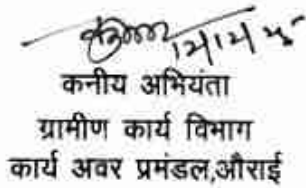 कनीय अभियंता
ग्रामीण कार्य विभाग
कार्य अवर प्रमंडल,औराई